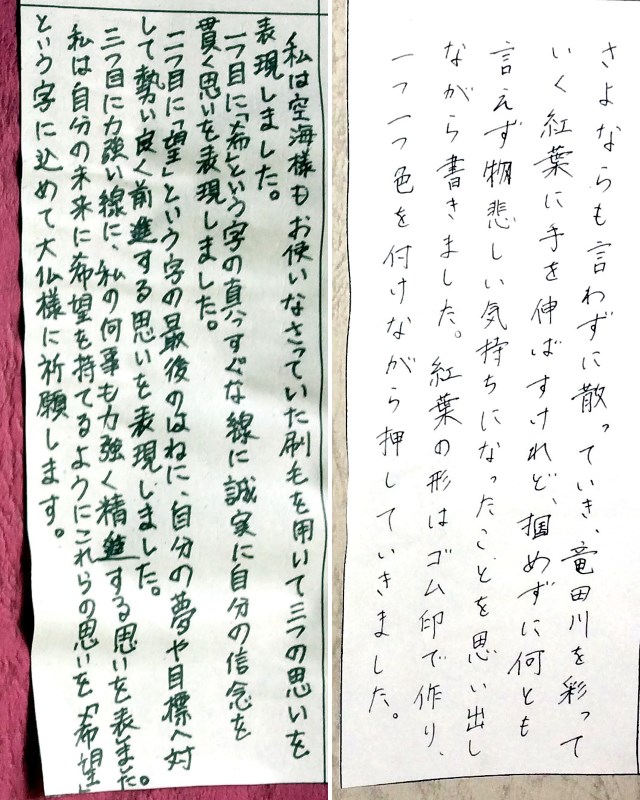 私は空海様もお使いなさっていた刷毛を用いて三つの思いを
表現しました。
一つ目に「希」という字の真っすぐな線に誠実に自分の信念を
貫く思いを表現しました。
二つ目に「望」という字の最後のはねに、自分の夢や目標へ対
して勢い良く前進する思いを表現しました。
三つ目に力強い線に、私の何事も力強く精進する思いを表ました。
私は自分の未来に希望を持てるようにこれらの思いを「希望」
という字に込めて大仏様に祈願します。
さよならも言わずに散っていき、竜田川を彩って
いく紅葉に手を伸ばすけれど、掴めずに何とも
言えず物悲しい気持ちになったことを思い出し
ながら書きました。紅葉の形はゴム印で作り、
一つ一つ色を付けながら押していきました。